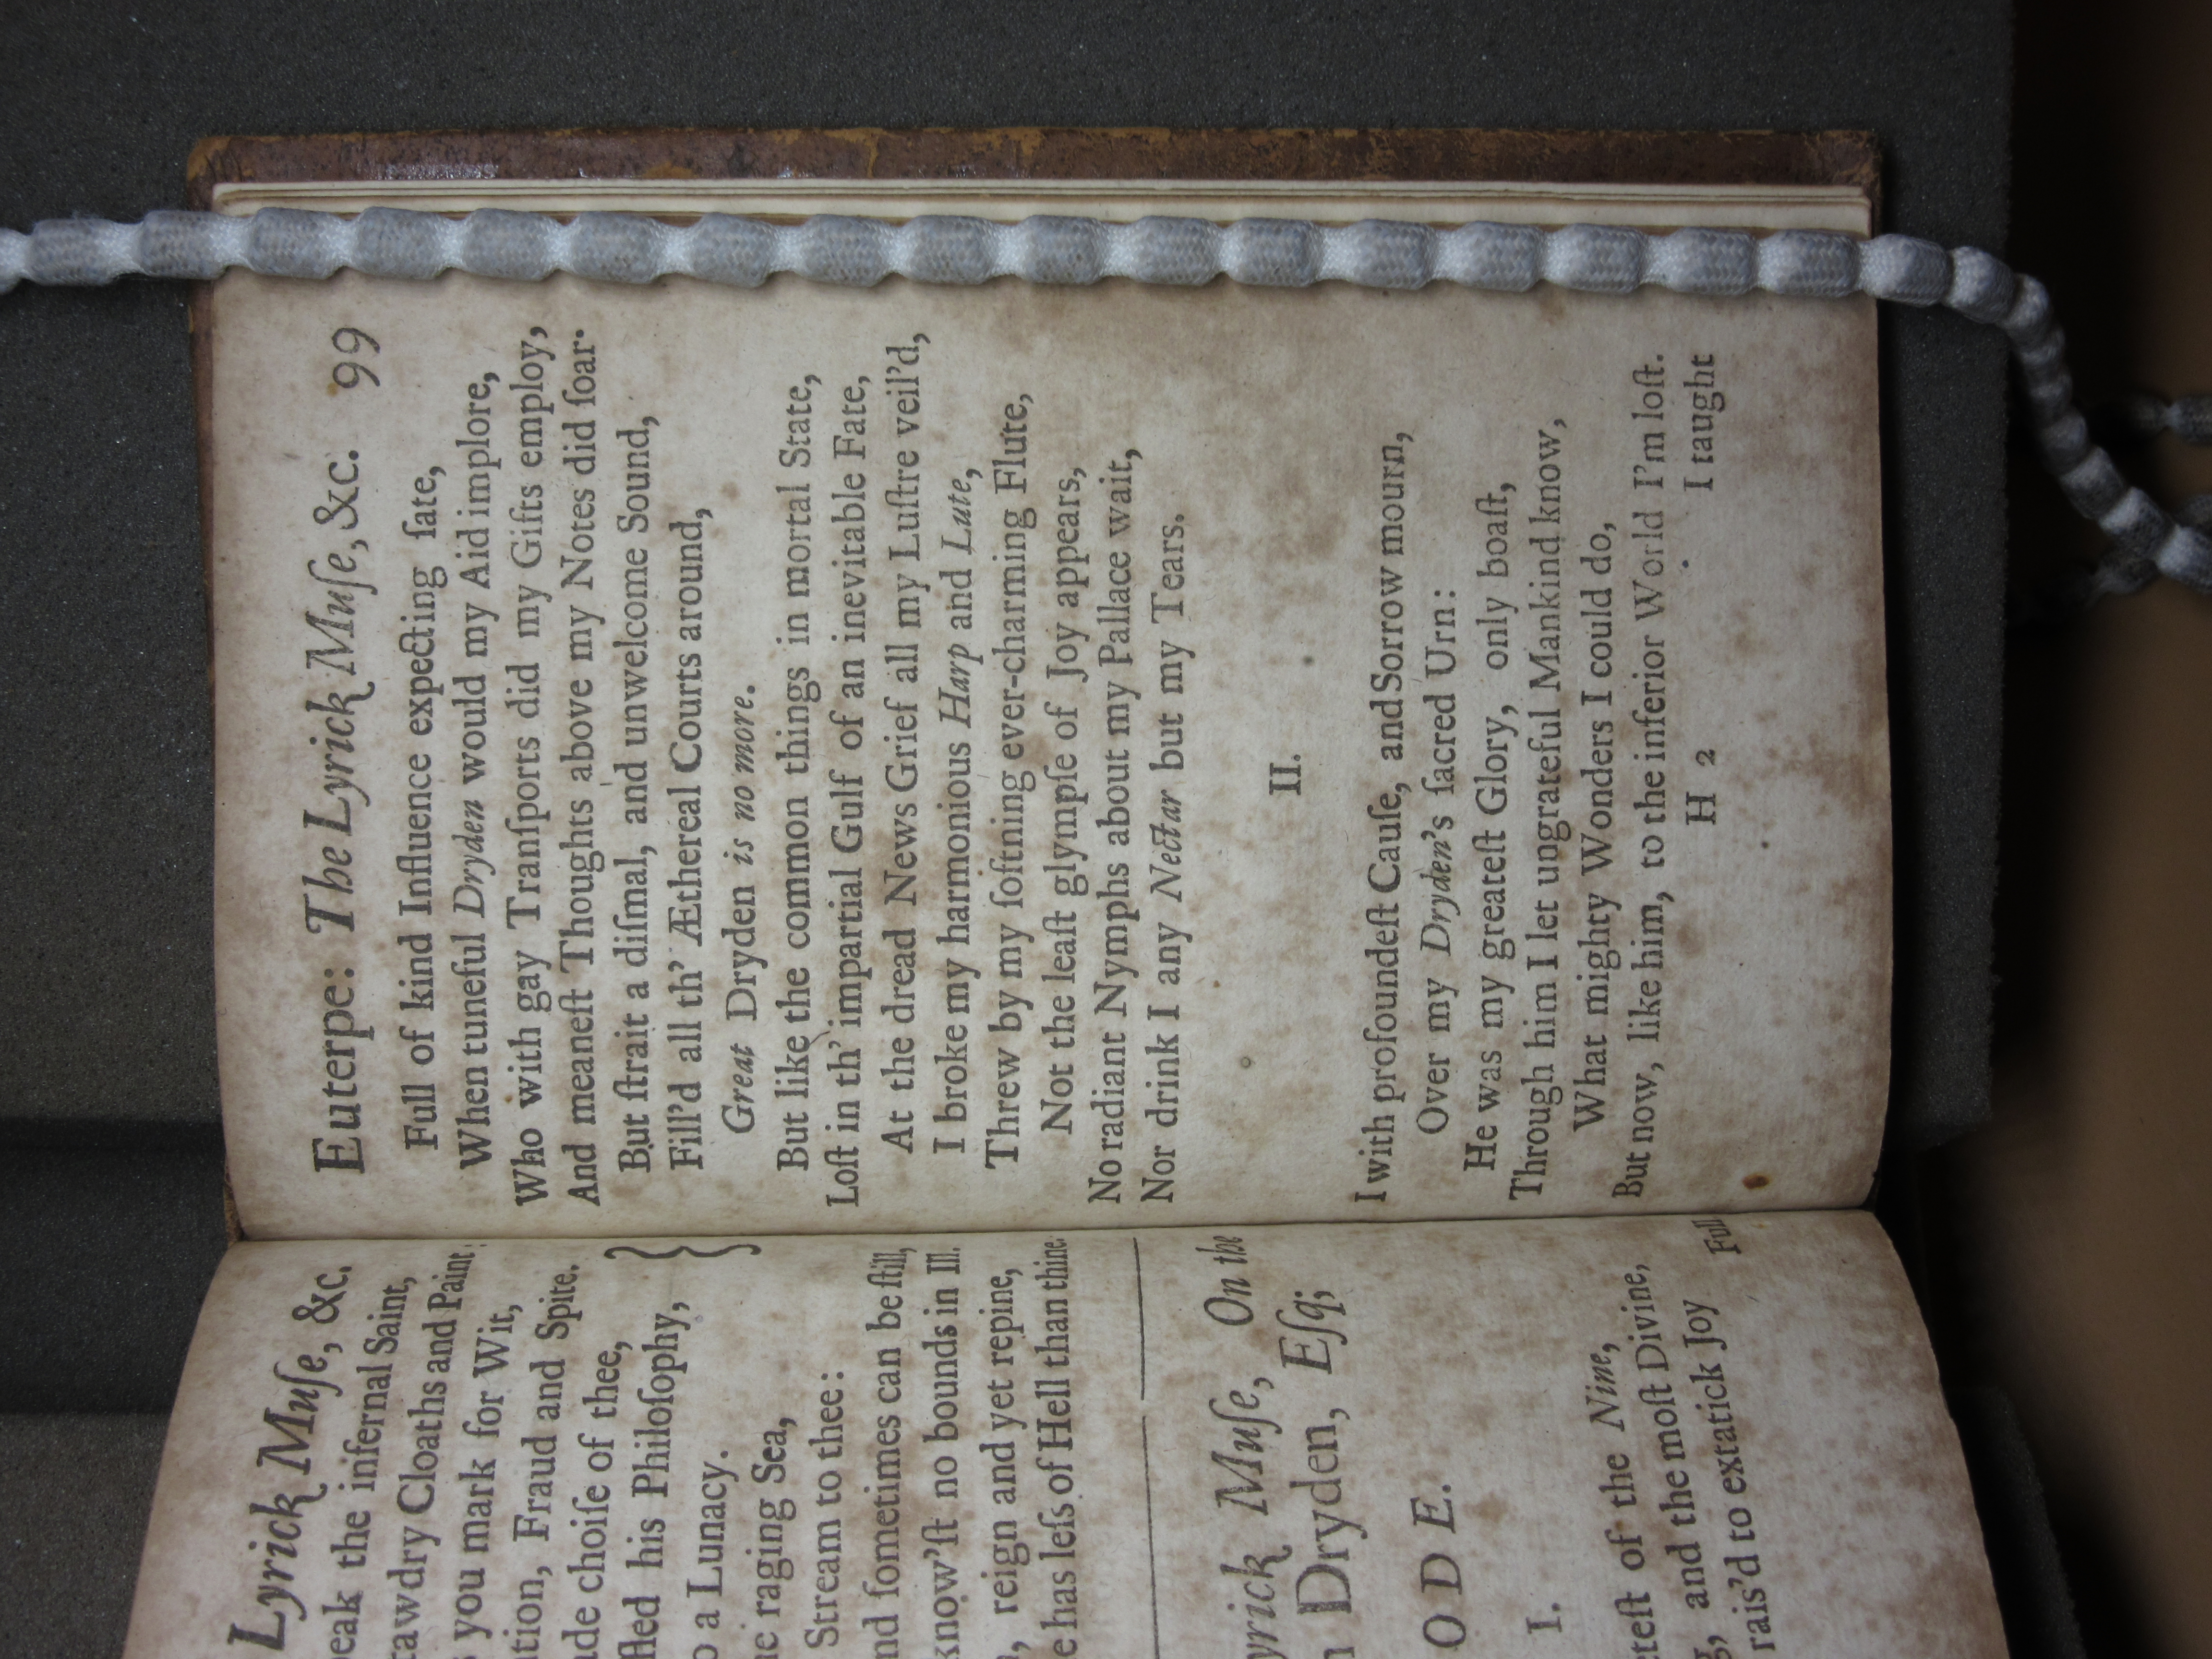 Lyrick Muſe, &c.
peak the infernal Saint,
tawdry Cloaths and Paint;
you mark for Wit,
tion, Fraud and Spite.
ade choiſe of thee,
fled his Philoſophy,
a Lunacy.
e raging Sea,
Stream to thee:
nd ſometimes can be ſtill,
know'ſt no bounds in Ill.
, reign and yet repine,
e has leſs of Hell than thine.
yrick Muſe, On the
n Dryden, Eſq;
ODE.
I.
teſt of the Nine,
, and the moſt Divine,
rais'd to extatick Joy
Full
Euterpe: The Lyrick Muſe, &c. 99
Full of kind Influence expecting ſate,
When tuneful Dryden would my Aid implore,
Who with gay Tranſports did my Gifts employ,
And meaneſt Thoughts above my Notes did ſoar.
But ſtrait a diſmal, and unwelcome Sound,
Fill'd all th' Æthereal Courts around,
Great Dryden is no more.
But like the common things in mortal State,
Loſt in th' impartial Gulf of an inevitable Fate,
At the dread News Grief all my Luſtre veil'd,
I broke my harmonious Harp and Lute,
Threw by my ſoftning ever-charming Flute,
Not the leaſt glympſe of Joy appears,
No radiant Nymphs about my Pallace wait,
Nor drink I any Nectar but my Tears.
II.
I with profoundeſt Cauſe, and Sorrow mourn,
Over my Dryden's ſacred Urn:
He was my greateſt Glory, only boaſt,
Through him I let ungrateful Mankind know,
What mighty Wonders I could do,
But now, like him, to the inferior World I'm loſt.
H 2 I taught